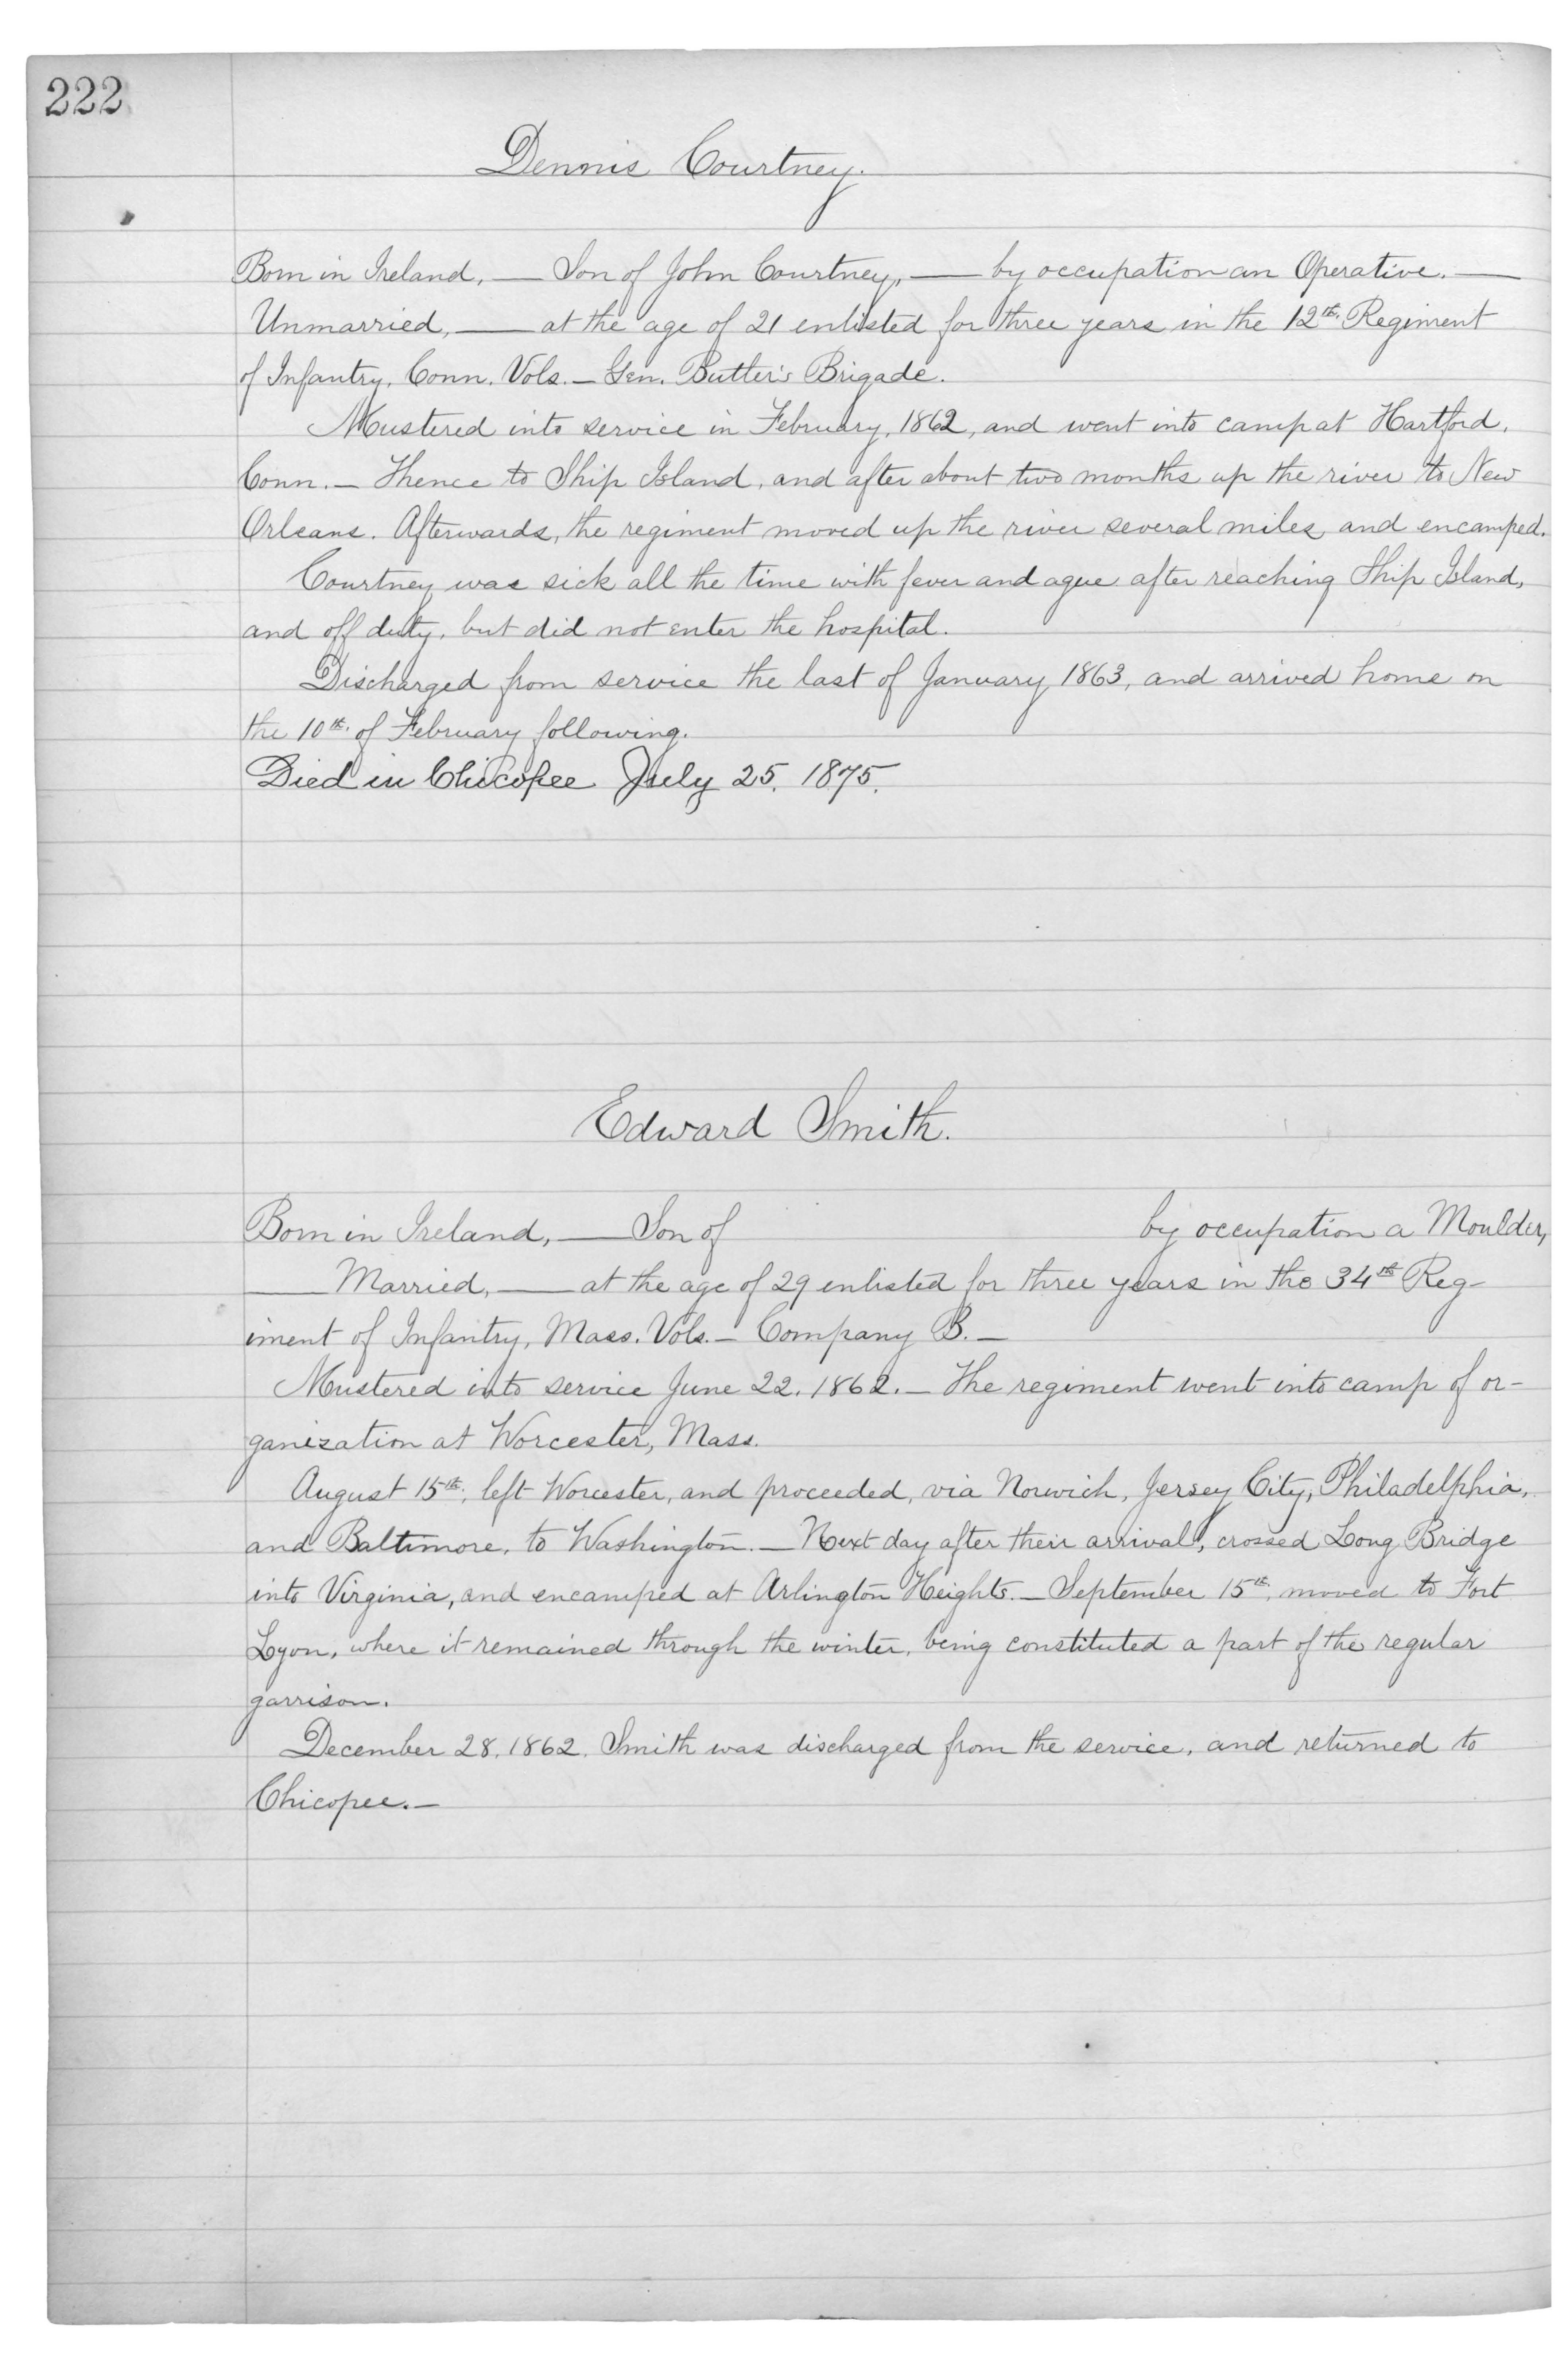 222
Dennis Courtney.
Born in Ireland, — Son of John Courtney, — by occupation an Operative. —
Unmarried, — at the age of 21 enlisted for three years in the 12th. Regiment
of Infantry, Conn. Vols. — Gen. Butler's Brigade.
Mustered into service in February, 1862, and went into camp at Hartford,
Conn. — Thence to Ship Island, and after about two months up the river to New
Orleans. Afterwards, the regiment moved up the river several miles and encamped.
Courtney was sick all the time with fever and ague after reaching Ship Island,
and off duty, but did not enter the hospital.
Discharged from service the last of January 1863, and arrived home on
the 10th. of February following.
Died in Chicopee July 25, 1875.
Edward Smith.
Born in Ireland, — Son of by occupation a Moulder,
— Married, — at the age of 29 enlisted for three years in the 34th Reg-
iment of Infantry, Mass. Vols. — Company B. —
Mustered into service June 22, 1862. — The regiment went into camp of or-
ganization at Worcester, Mass.
August 15th, left Worcester, and proceeded, via Norwich, Jersey City, Philadelphia,
and Baltimore, to Washington. — Next day after their arrival, crossed Long Bridge
into Virginia, and encamped at Arlington Heights. — September 15th, moved to Fort
Lyon, where it remained through the winter, being constituted a part of the regular
garrison.
December 28, 1862, Smith was discharged from the service, and returned to
Chicopee. —